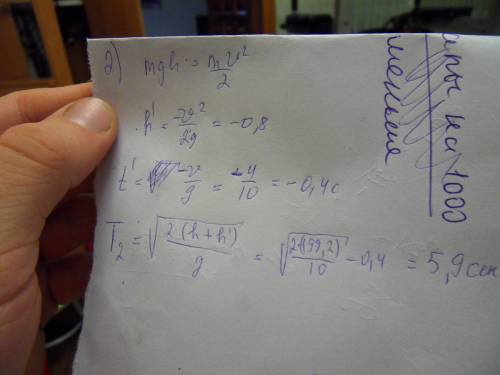 2) mgh = mv²/2
h' = -v²/2g = -0,8
t' = -v/g = -4/10 = -0,4 с
T₂ = √(2(h+h')/g) = √(2(199,2)/10) - 0,4 = 5,9 сек
на 1000
меньше